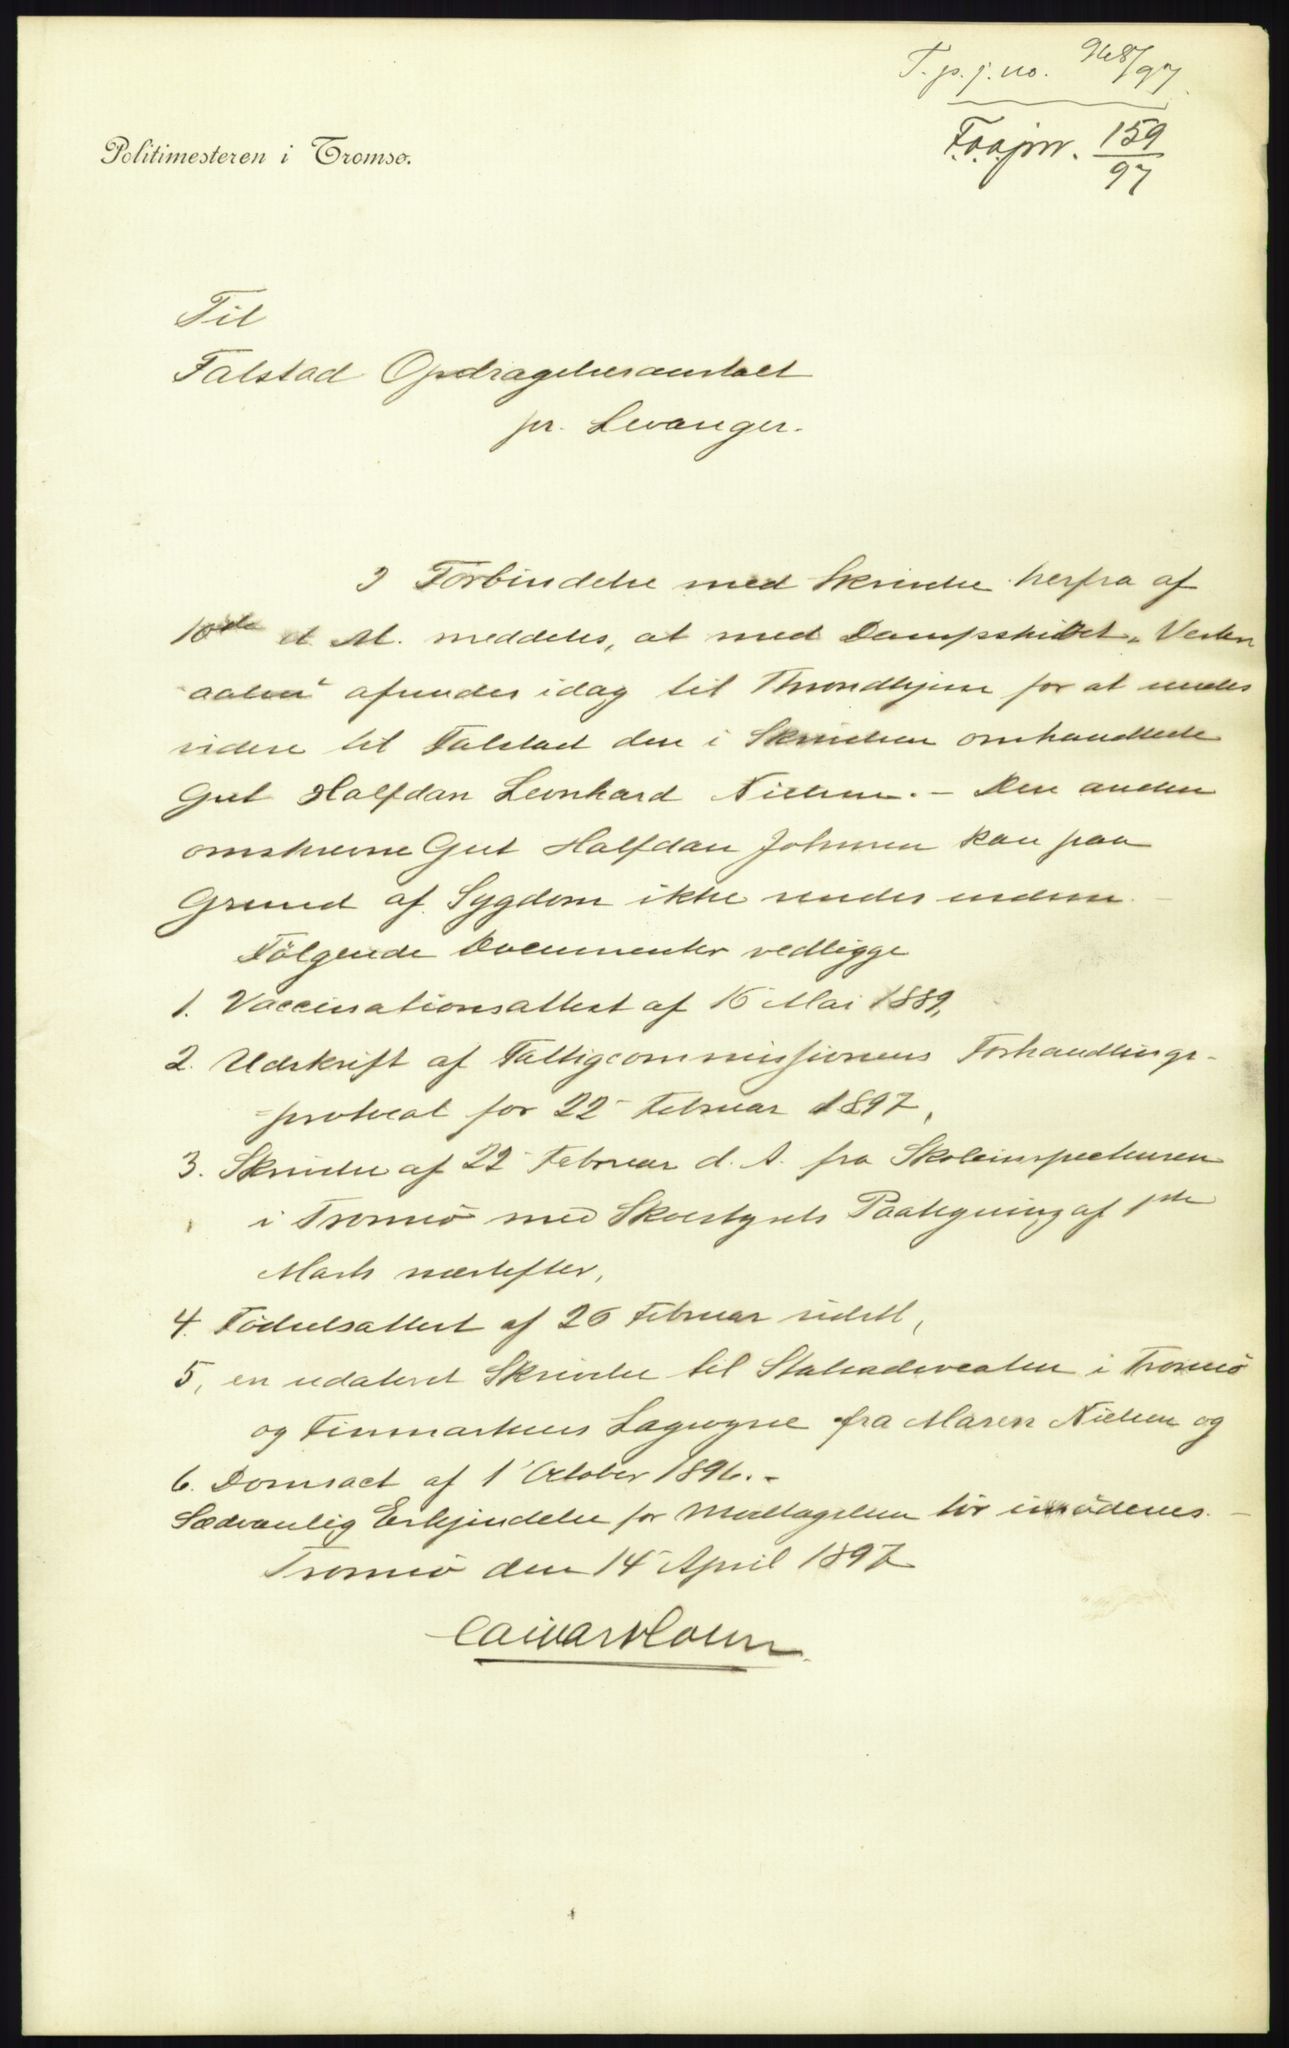 T. p. j. no. 968/97.
F.o.a.jnr. 159/97
Politimesteren i Tromsø.
Til
Falstad Opdragelsesanstalt
pr. Levanger.
I Forbindelse med Skrivelse herfra af
10de d. M. meddeles, at med Dampskibet „Vester
aalen“ afsendes idag til Throndhjem for at sendes
videre til Falstad den i Skrivelsen omhandlede
Gut Halfdan Leonhard Nielsen. – Den anden
omskrevne Gut Halfdan Johnsen kan paa
Grund af Sygdom ikke sendes endnu. –
Følgende Documenter vedligge
1. Vaccinationsattest af 16 Mai 1889,
2. Udskrift af Fattigcommissionens Forhandlings-
=protocol for 22 Februar 1897,
3. Skrivelse af 22 Februar d. A. fra Skoleinspecteuren
i Tromsø med Skolestyrets Paategning af 1ste
Marts næstefter,
4. Fødselsattest af 26 Februar sidstl,
5, en udateret Skrivelse til Statsadvocaten i Tromsø
og Finmarkens Lagsogne fra Maren Nielsen og
6. Domsact af 1 October 1896. –
Sædvanlig Erkjendelse for Modtagelsen tør imødesees. –
Tromsø den 14 April 1897